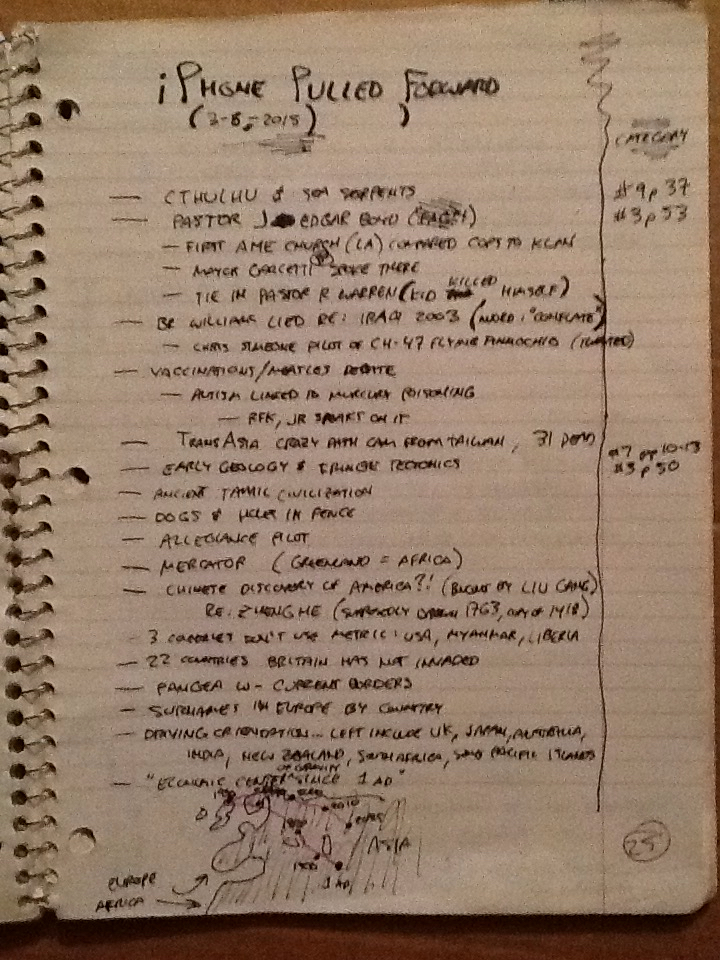 iPHONE PULLED FORWARD
(3-8-2015)
CATEGORY
— CTHULHU & SEA SERPENTS #9 p 37
— PASTOR J EDGAR BOYD #3 p 53
— FIRST AME CHURCH (LA) COMPARED COPS TO KLAN
— MAYOR GARCETTI SPOKE THERE
— TIE IN PASTOR R WARREN (KID KILLED HIMSELF)
— BR WILLIAMS LIED RE: IRAQ 2003 (WORD: "CONFLATE")
— CHRIS SIMEONE PILOT OF CH-47 FLYING PINNOCHIO
— VACCINATIONS/MEASLES DEBATE
— AUTISM LINKED TO MERCURY POISONING
— RFK, JR SPEAKS ON IT
— TRANSASIA CRAZY DASH CAM FROM TAIWAN, 31 DEAD
— EARLY GEOLOGY & FRINGE TECTONICS #7 pp 10-13
#3 p 50
— ANCIENT TAMIL CIVILIZATION
— DOGS & HOLES IN FENCE
— ALLEGIANCE PILOT
— MERCATOR (GREENLAND = AFRICA)
— CHINESE DISCOVERY OF AMERICA?! (BOUGHT BY LIU GANG)
RE: ZHENG HE (SUPPOSEDLY DRAWN 1763, COPY OF 1418)
- 3 COUNTRIES DON'T USE METRIC: USA, MYANMAR, LIBERIA
— 22 COUNTRIES BRITAIN HAS NOT INVADED
— PANGEA W- CURRENT BORDERS
— SURNAMES IN EUROPE BY COUNTRY
— DRIVING ORIENTATION... LEFT INCLUDE UK, JAPAN, AUSTRALIA,
INDIA, NEW ZEALAND, SOUTH AFRICA, SOME PACIFIC ISLANDS
— "ECONOMIC CENTER OF GRAVITY SINCE 1 AD"
2010
2025
ASIA
1 AD
EUROPE
AFRICA
25